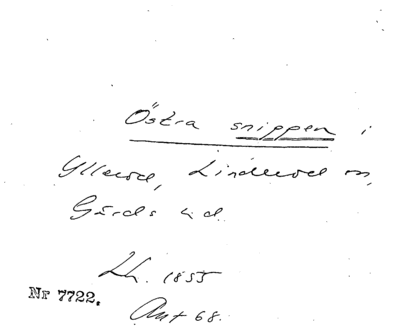 Östra snippen i
Yllerod, Linderod sn,
Gärds hd.
Lh. 1855
Nr 7722.
Akt 68.